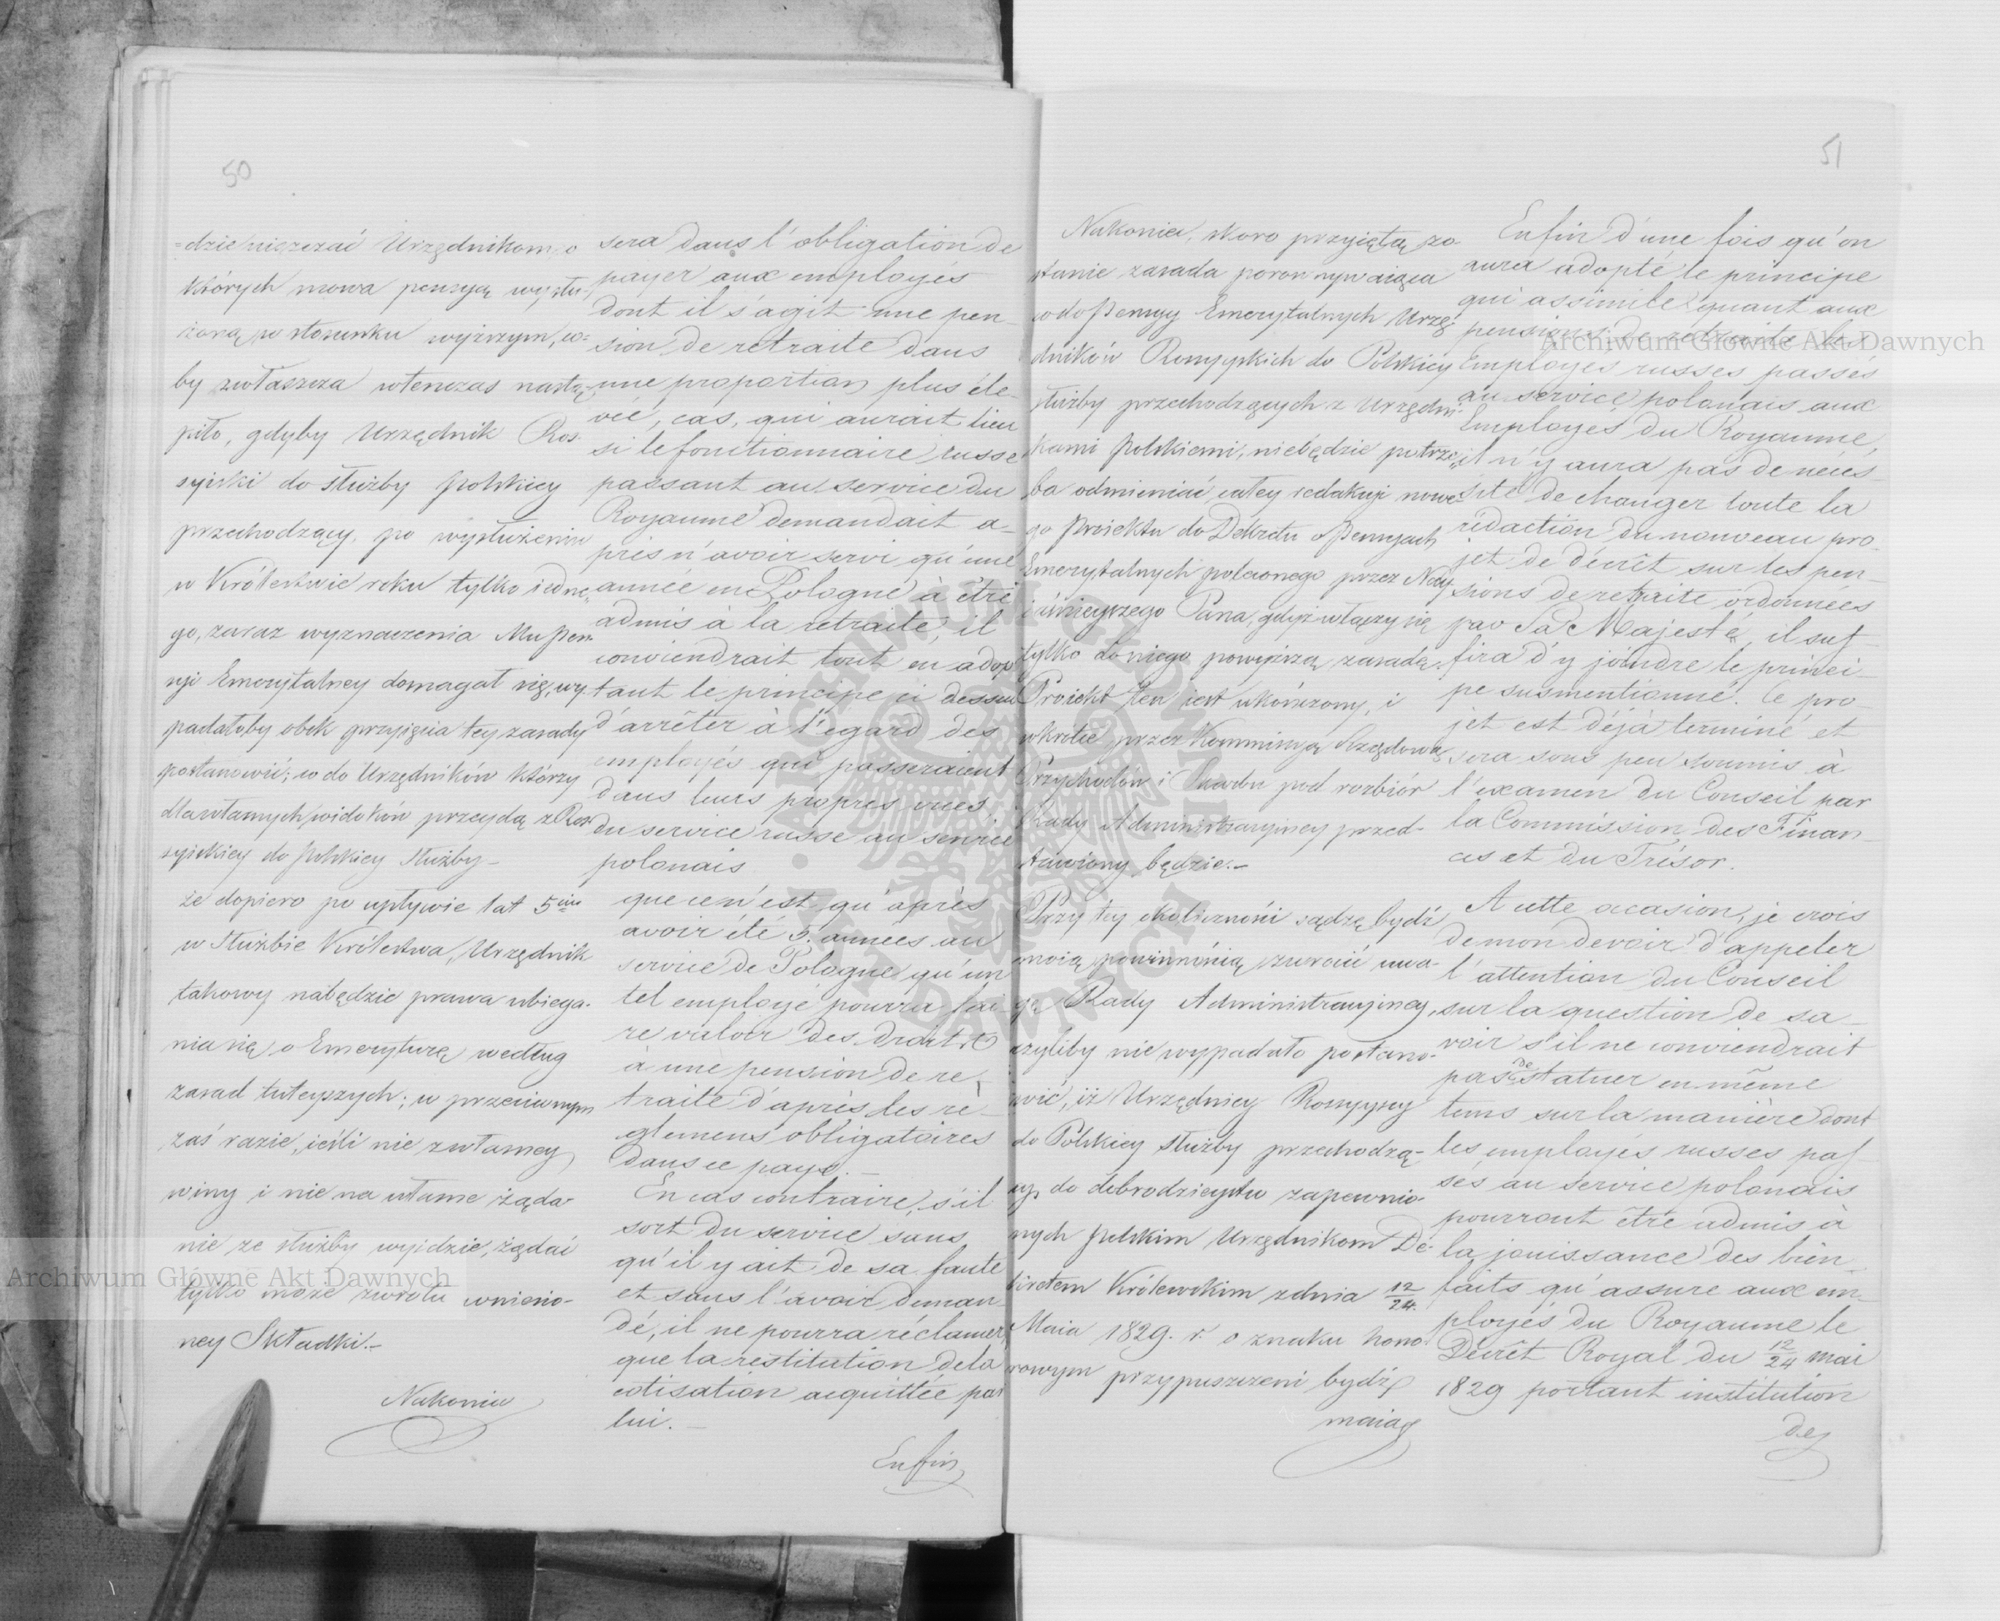 50
=dzie uiszczać Urzędnikom, o
których mowa pensyą wysłu-
żoną, w stosunku wyższym, co-
by zwłaszcza wtenczas nastą-
piło, gdyby Urzędnik Ros-
syiski do służby polskiey
przechodzący, po wysłużeniu
w Królestwie roku tylko iedne-
go, zaraz wyznaczenia Mu pen-
syi Emerytalney domagał się, wy-
padałoby obok przyięcia tey zasady
postanowić; co do Urzędników którzy
dla własnych widoków przeydą z Ros-
syiskiey do polskiey służby –
że dopiero po upływie lat 5ciu
w służbie Królestwa, Urzędnik
takowy nabędzie prawa ubiega-
nia się o Emeryturę według
zasad tuteyszych; w przeciwnym
zaś razie, ieśli nie z własney
winy i nie na własne żąda-
nie ze służby wyidzie, żądać
tylko może zwrotu wniesio-
ney Składki. –
Nakoniec
sera dans l'obligation de
payer aux employés
dont il s'agit une pen-
sion de retraite dans
une proportion plus éle-
vée, cas, qui aurait lieu
si le fonctionnaire russe
passant au service du
Royaume demandait a-
près n'avoir servi qu'une
année en Pologne à être
admis à la retraite, il
conviendrait tout en adop-
tant le principe ci dessus
d'arrêter à l'égard des
employés qui passeraient
dans leurs propres vues
du service russe au service
polonais
que ce n'est qu'après
avoir été 5. années au
service de Pologne qu'un
tel employé pourra fai-
re valoir des droits
à une pension de re-
traite d'après les rè-
glemens obligatoires
dans ce pays. –
En cas contraire, s'il
sort du service sans
qu'il y ait de sa faute
et sans l'avoir deman-
dé, il ne pourra réclamer
que la restitution de la
cotisation acquittée par
lui. –
Enfin
51
Nakoniec, skoro przyiętą zo
stanie zasada porównywaiąca
co do Pensyy Emerytalnych Urzę-
dników Rossyyskich do Polskiéy
służby przechodzących z Urzędni-
kami polskiemi, niebędzie potrze-
ba odmieniać całey redakcyi nowe-
go Proiektu do Dekretu o Pensyach
Emerytalnych poleconego przez Nay-
iaśnieyszego Pana, gdyż włączy się
tylko do niego powyższą zasadę.
Proiekt ten iest ukończony, i
wkrótce przez Kommissyą Rządową
Przychodów i Skarbu pod rozbiór
Rady Administracyiney przed-
stawiony będzie. –
Przy tey okoliczności sądzę bydź
moią powinnością zwrócić uwa-
gę Rady Administracyiney,
czyliby nie wypadało postano-
wić, iż Urzędnicy Rossyyscy
do Polskiey służby przechodzą-
cy, do dobrodzieystw zapewnio-
nych polskim Urzędnikom De-
kretem Królewskim z dnia 12/24.
Maia 1829. r. o znaku hono-
rowym przypuszczeni bydź
maią
Enfin d'une fois qu'on
aura adopté le principe
qui assimile quant aux
pensions de rétraite les
Employés russes passés
au service polonais aux
Employés du Royaume,
il n'y aura pas de néces-
sité de changer toute la
rédaction du nouveau pro-
jet de décrêt sur les pen-
sions de retraite ordonnées
par Sa Majesté, il suf
fira d'y joindre le princi-
pe susmentionné. Ce pro-
jet est déja terminé et
sera sous peu soumis à
l'examen du Conseil par
la Commission des Finan-
ces et du Trésor.
A cette occasion, je crois
de mon devoir d'appeler
l'attention du Conseil
sur la question de sa-
voir s'il ne conviendrait
pas de statuer en même
tems sur la manière dont
les employés russes pas-
sés au service polonais
pourront être admis à
la jouissance des bien-
faits qu'assure aux em-
ployés du Royaume le
Décrêt Royal du 12/24 mai
1829 portant institution
des
Archiwum Główne Akt Dawnych
Archiwum Główne Akt Dawnych